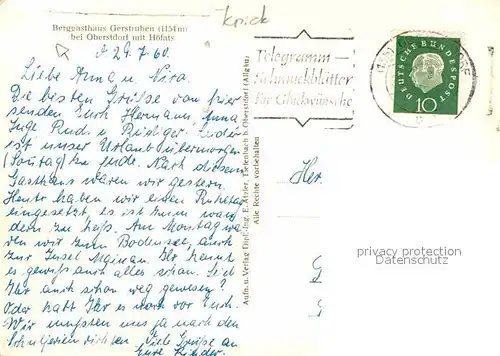 Krick
Berggasthaus Gerstruben (1154 m)
bei Oberstdorf mit Höfats
d 29.7.60.
Liebe Anna u. Nora.
Die besten Grüße von hier
senden Euch Hermann, Anna
Inge Rud. u. Rüdiger. Leider
ist unser Urlaub übermorgen
(Sonntag) zu Ende. Nach diesem
Gasthaus waren wir gestern.
Heute haben wir einen Ruhetag
eingesetzt, es ist zum wan
dern zu heiß. Am Montag wa
ren wir zum Bodensee, auch
zur Insel Mainau. Ihr kennt
es gewiß auch alles schon. Seid
Ihr auch schon weg gewesen?
Oder habt Ihr es noch vor Euch.
Wir mußten uns ja nach den
Schulferien richten. Viele Grüße an
Eure Kinder.
Aufn. u. Verlag Dipl.-Ing. E. Atzler, Tiefenbach b. Oberstdorf (Allgäu)
Alle Rechte vorbehalten
Telegramm—
Schmuckblätter
für Glückwünsche
DEUTSCHE BUNDESPOST
10
Her
privacy protection
watermark